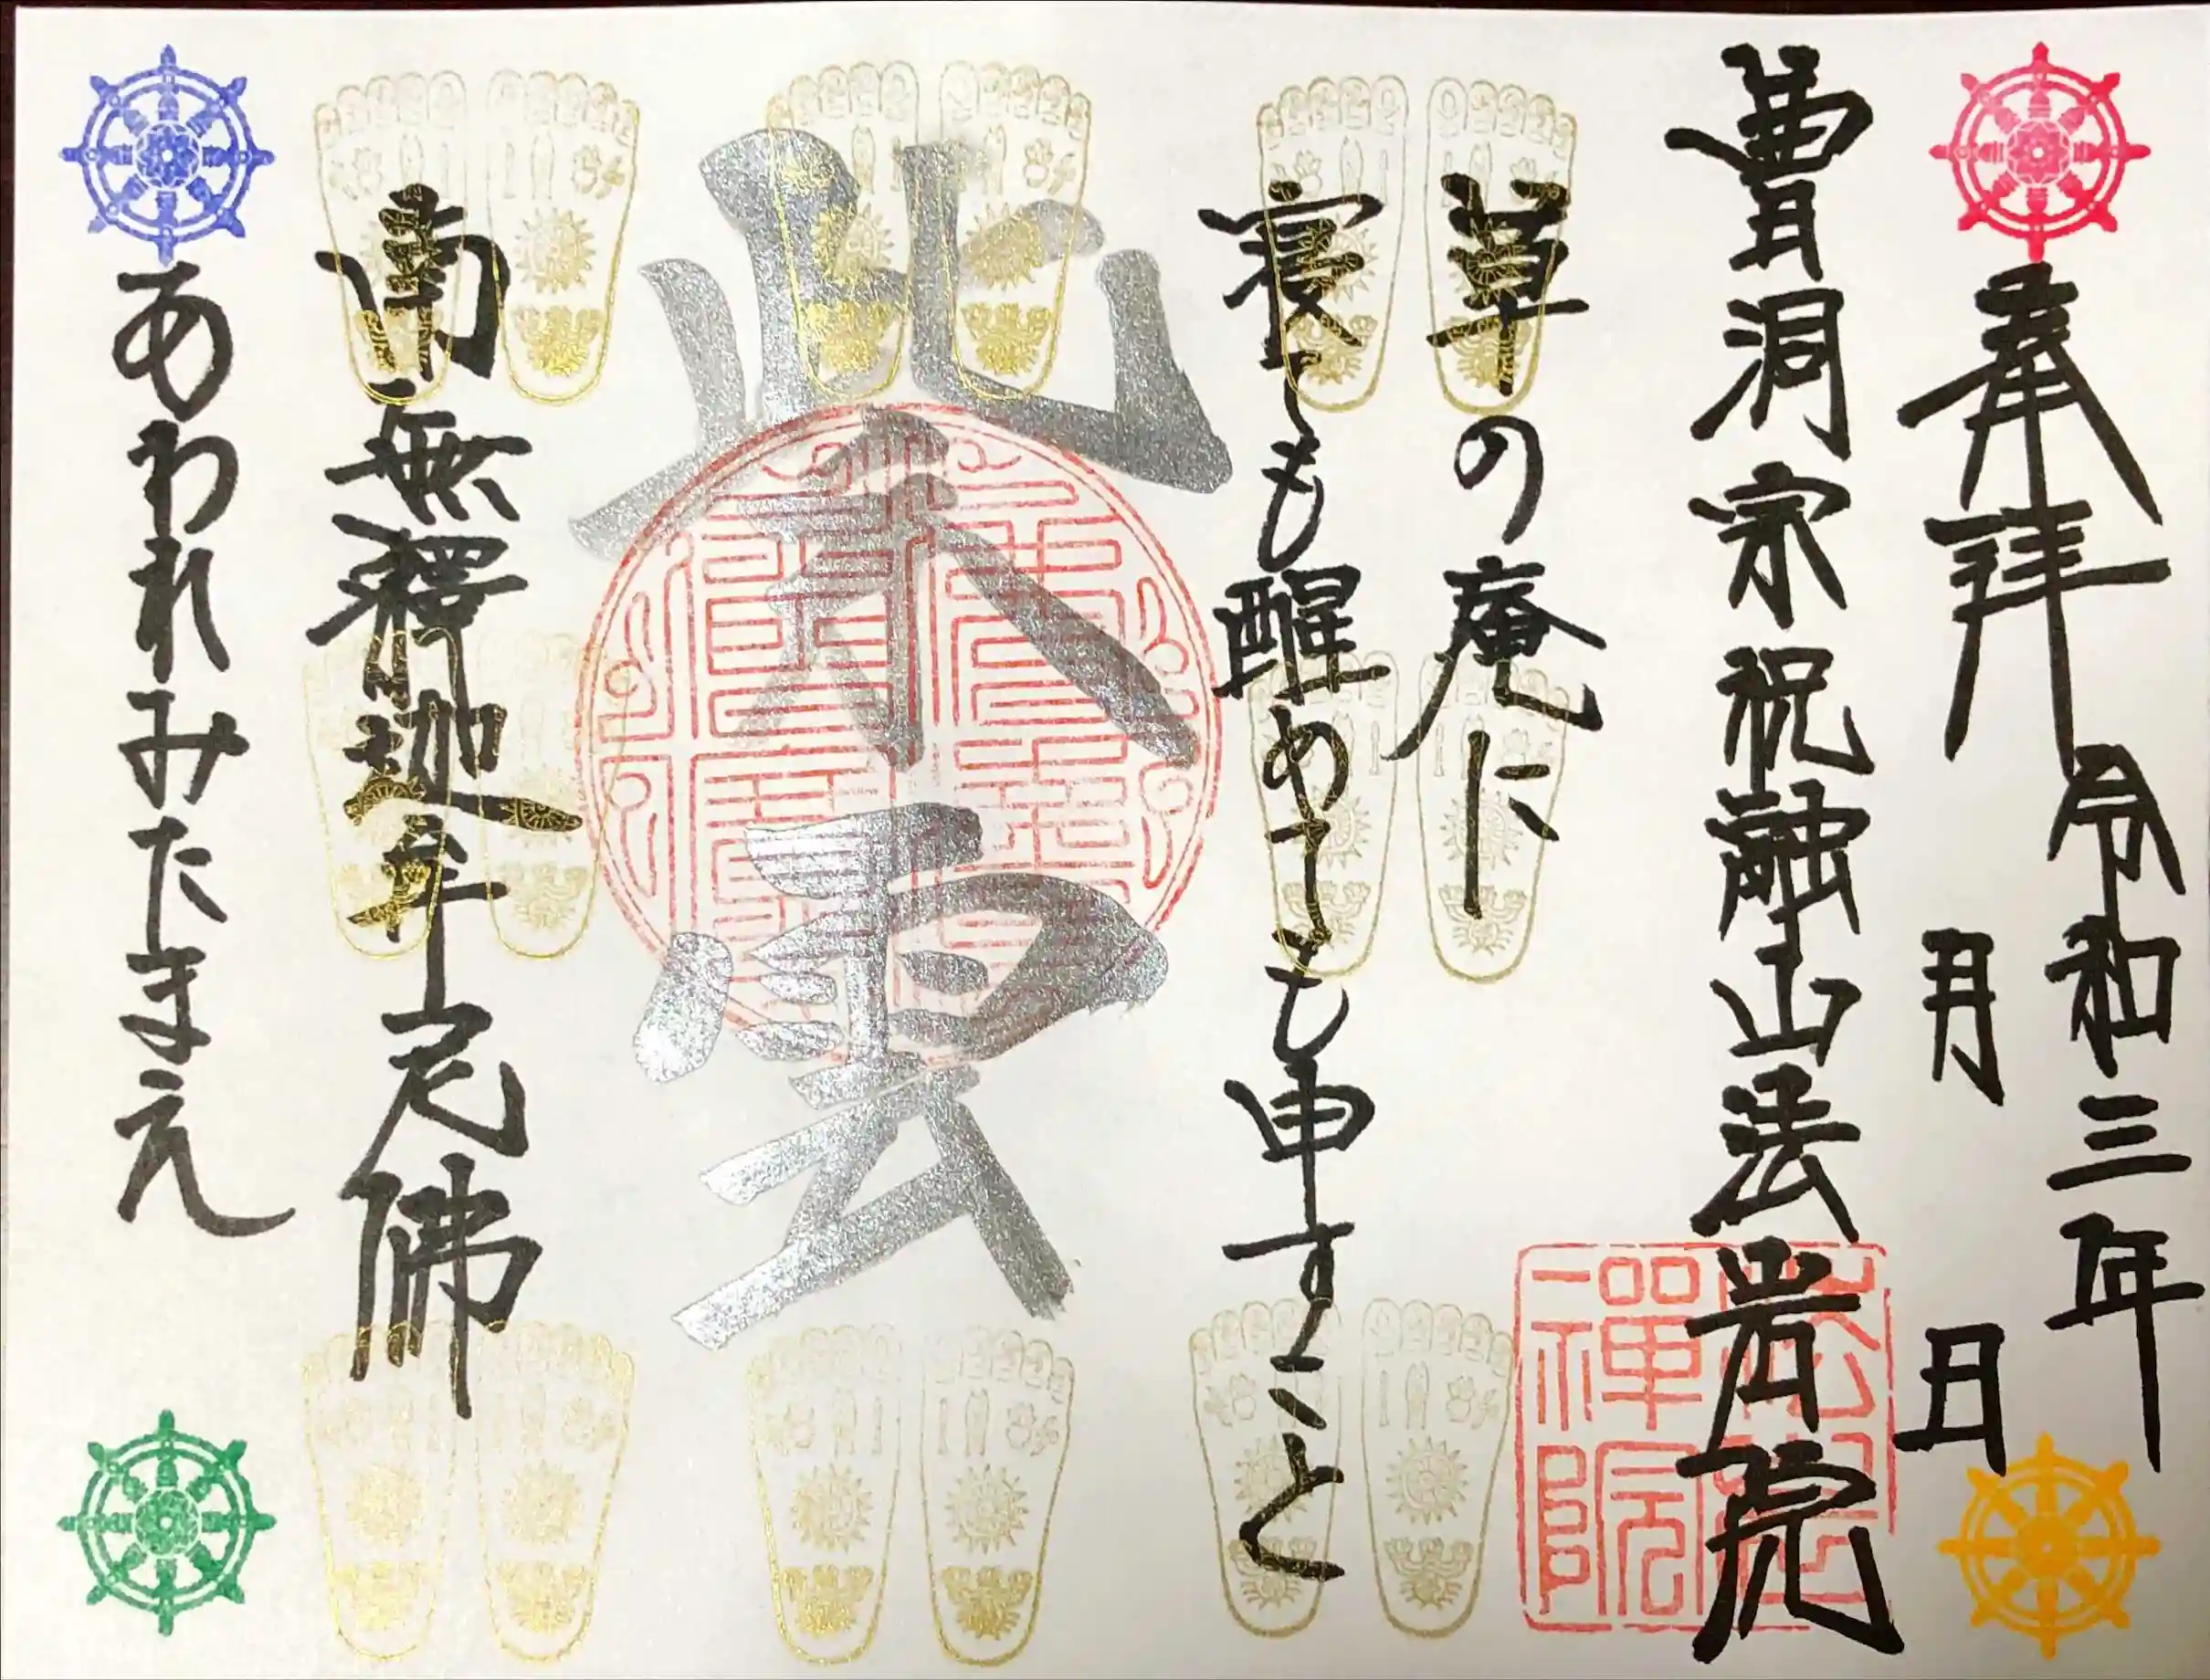 奉拝
令和三年
月 日
曹洞宗祝融山法岩院
禪院
草の庵に
寝ても醒めても申すこと
紫雲
南無釋迦牟尼佛
あわれみたまえ